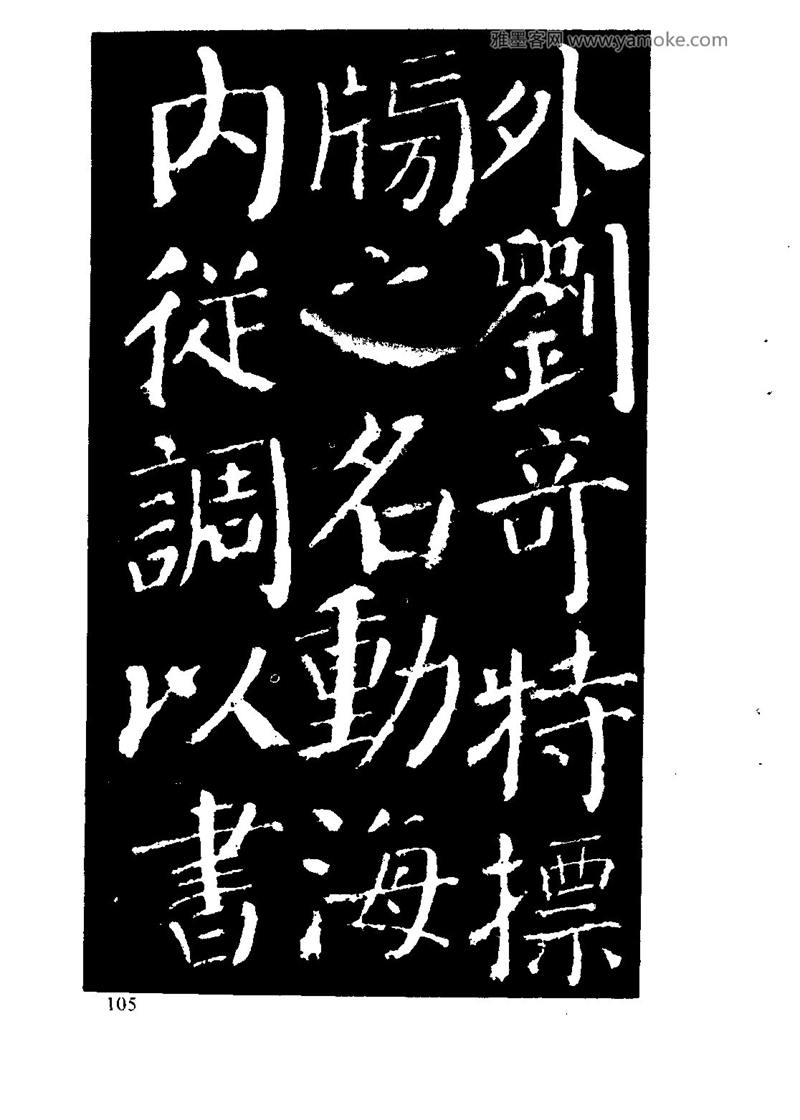 雅墨客网 www.yamoke.com
外劉竒特摽
牓之名動海
内從調以書
105